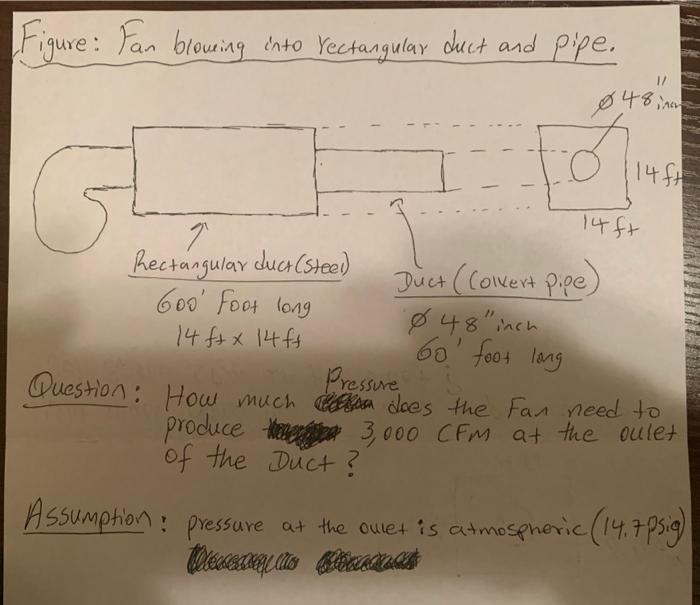 Figure: Fan blowing into rectangular duct and pipe.
Ø 48" inch
14 ft
14 ft
Rectangular duct (steel)
600' Foot long
14 ft x 14 ft
Duct (Colvert pipe)
Ø 48" inch
60' foot long
Question: How much Pressure does the Fan need to
produce 3,000 CFM at the oulet
of the Duct?
Assumption: pressure at the oulet is atmospheric (14.7psig)